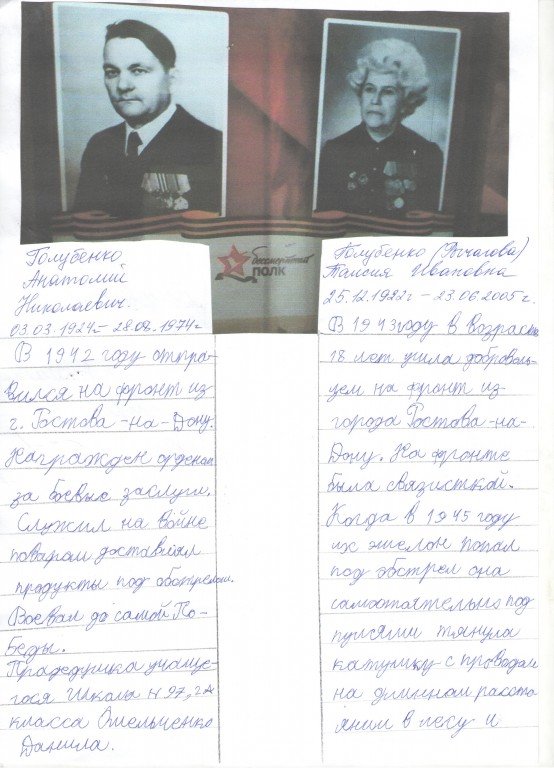 Голубенко
Анатолий
Николаевич.
03.03.1924г. – 28.08.1974г
В 1942 году отпра-
вился на фронт из
г. Ростова-на-Дону.
Награжден орденом
за боевые заслуги.
Служил на войне
поваром доставлял
продукты под обстрелом.
Воевал до самой По-
беды.
Прадедушка учаще-
гося школы № 97, 2А
класса Омельченко
Данила.
бессмертный
ПОЛК
Голубенко (Рычагова)
Таисия Ивановна
25.12.1922г – 23.06.2005г.
В 1943 году в возрасте
18 лет ушла доброволь-
цем на фронт из
города Ростова-на-
Дону. На фронте
была связисткой.
Когда в 1945 году
их эшелон попал
под обстрел она
самостоятельно под
пулями тянула
катушку с проводом
на длинном рассто-
янии в лесу и